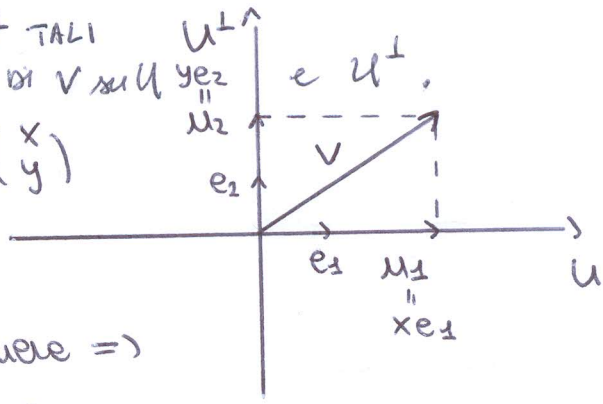 TALI
U⊥
DI V sull ye2 e U⊥.
=
u2
( x
y )
V
e2
e1 u1
=
xe1
U
=>